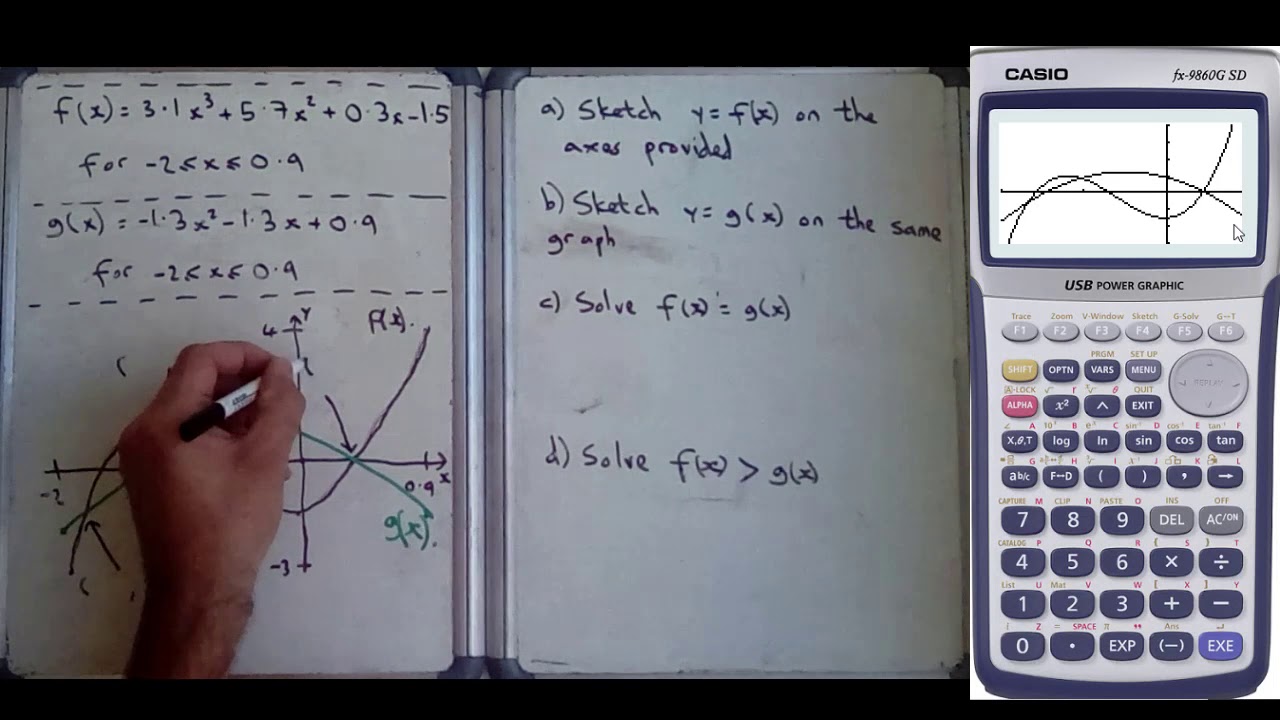 f(x) = 3·1x³ + 5·7x² + 0·3x - 1·5
for -2 ≤ x ≤ 0·9
g(x) = -1·3x² - 1·3x + 0·9
for -2 ≤ x ≤ 0·9
4
Y
f(x).
-2
0·9
x
g(x).
-3
a) Sketch y = f(x) on the
axes provided
b) Sketch y = g(x) on the same
graph
c) Solve f(x) = g(x)
d) Solve f(x) > g(x)
CASIO fx-9860G SD
USB POWER GRAPHIC
Trace Zoom V-Window Sketch G-Solv G↔T
F1 F2 F3 F4 F5 F6
PRGM SET UP
SHIFT OPTN VARS MENU
REPLAY
A-LOCK √ r ˣ√ θ QUIT
ALPHA x² ^ EXIT
∠ A 10ˣ B eˣ C sin⁻¹ D cos⁻¹ E tan⁻¹ F
X,θ,T log ln sin cos tan
G H ³√ I x⁻¹ J K L
a b/c F↔D ( ) , →
CAPTURE M CLIP N PASTE O INS OFF
7 8 9 DEL AC/ON
CATALOG P Q R { S } T
4 5 6 × ÷
List U Mat V W [ X ] Y
1 2 3 + −
i Z = SPACE π " Ans ↵
0 · EXP (−) EXE